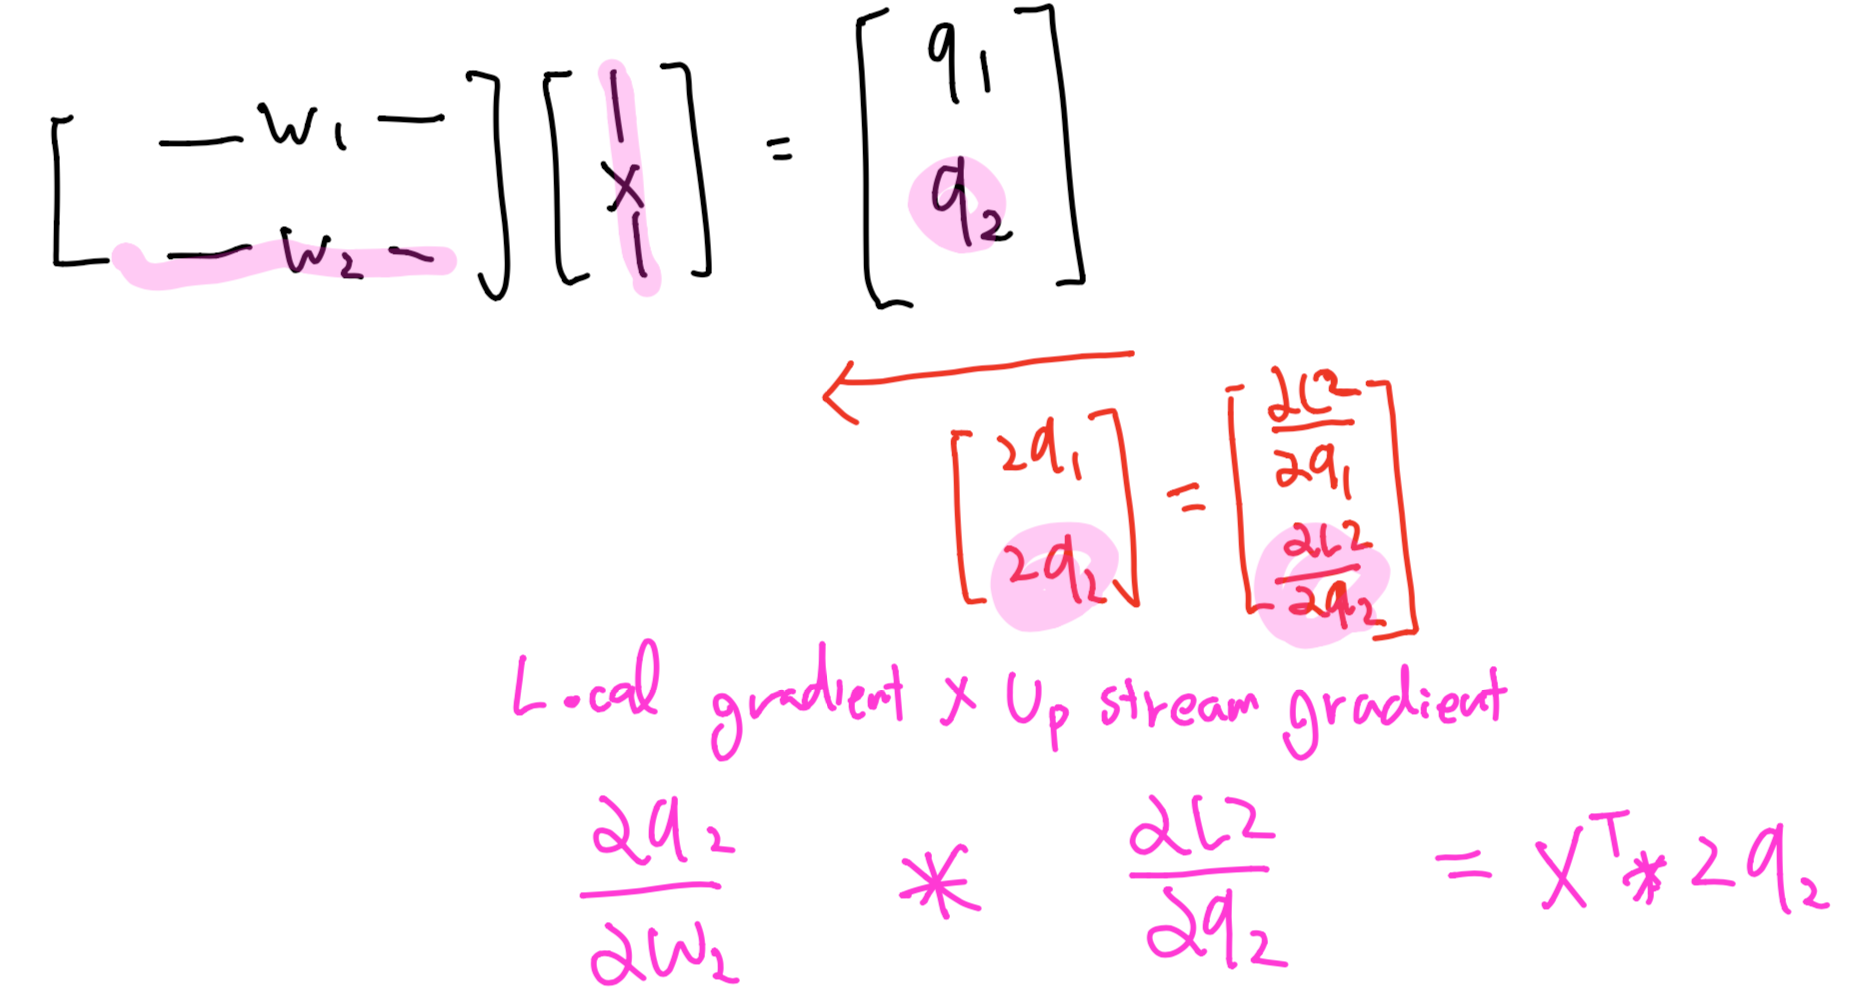 [ — W₁ — ] [ | ] = [ q₁ ]
[ — W₂ — ] [ X | ] [ q₂ ]
[ 2q₁ ] = [ ∂L2/∂q₁ ]
[ 2q₂ ] [ ∂L2/∂q₂ ]
Local gradient X Up stream gradient
∂q₂/∂W₂ * ∂L2/∂q₂ = Xᵀ * 2q₂